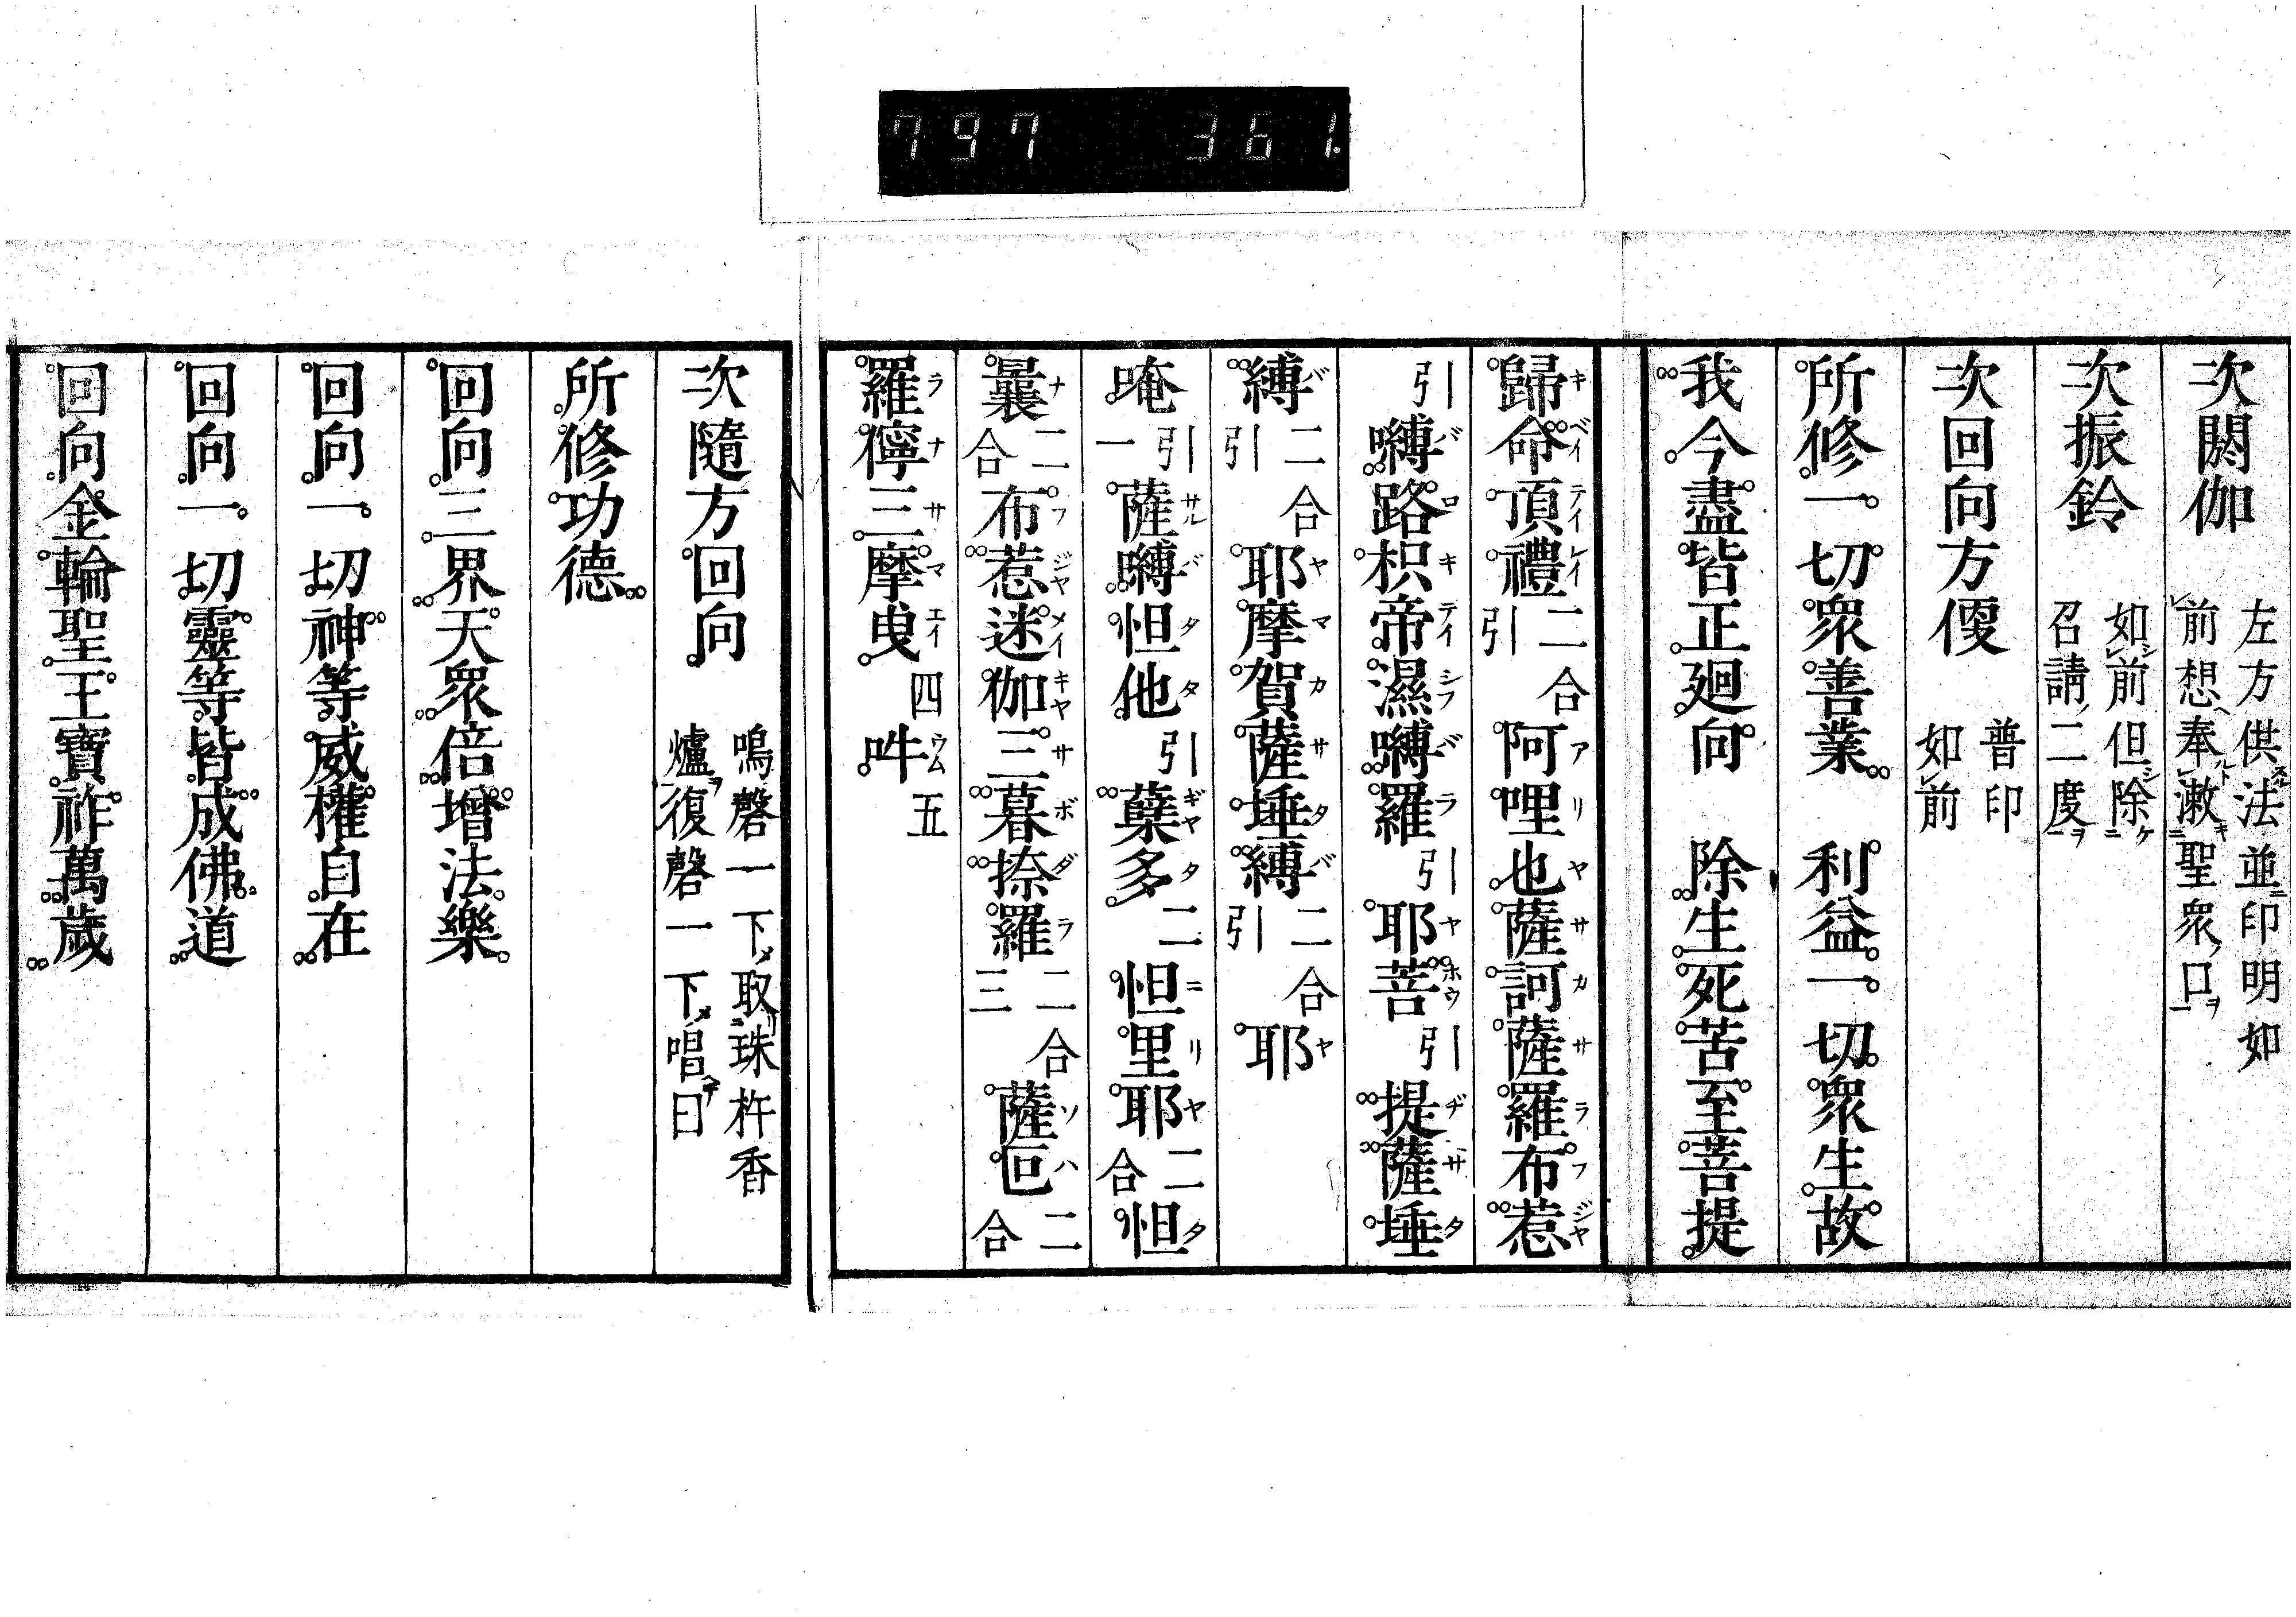 797 361.
次閼伽 左方供法並印明如前想奉漱聖衆口
次振鈴 如前但除召請二度
次回向方便 普印如前
所修一切衆善業 利益一切衆生故
我今盡皆正廻向 除生死苦至菩提
歸命頂禮二合引阿哩也薩訶薩羅布惹
引嚩路枳帝濕嚩羅引耶菩引提薩埵
縛二合引耶摩賀薩埵縛二合引耶
唵引一薩嚩怛他引蘖多二怛里耶二合怛
曩二合布惹迷伽三暮捺羅二合三薩叵二合
羅儜三摩曳四吽五
次隨方回向 鳴磬一下取珠杵香爐復磬一下唱曰
所修功德
回向三界天衆倍增法樂
回向一切神等威權自在
回向一切靈等皆成佛道
回向金輪聖王寶祚萬歲